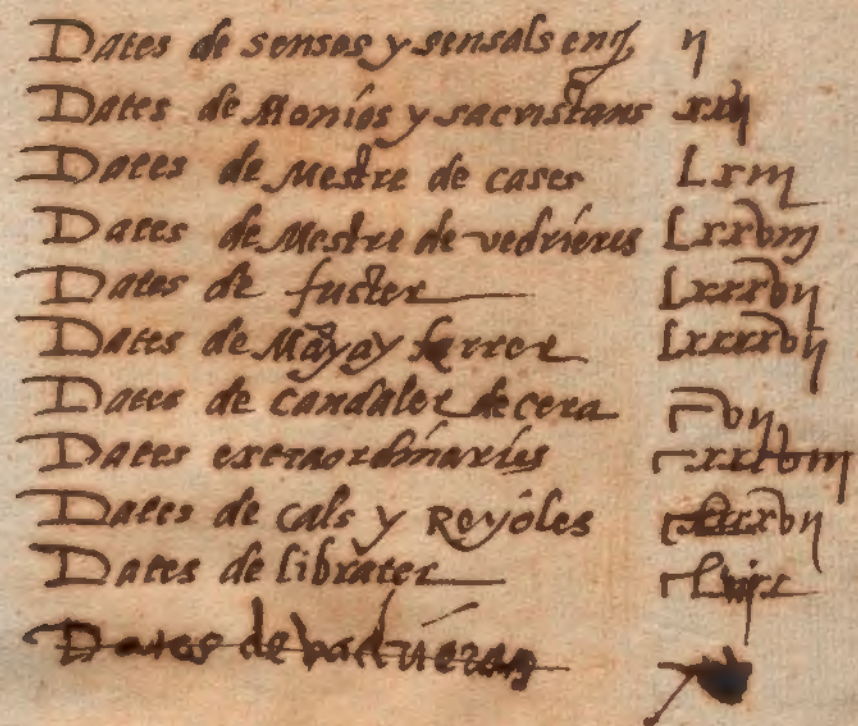 Dates de senses y sensals enq, ij
Dates de Monios y sacristans xxij
Dates de Mestre de cases Lxiij
Dates de Mestre de vedrieres Lxxviij
Dates de fuster Lxxxvij
Dates de Mãya y ferrer Lxxxxvij
Dates de Candaler de cera cvij
Dates extraordinaries
Dates de cals y Reyoles
Dates de librater
Dates de